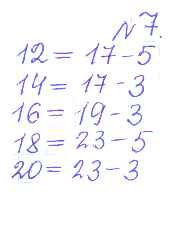 N 7.
12 = 17 - 5
14 = 17 - 3
16 = 19 - 3
18 = 23 - 5
20 = 23 - 3